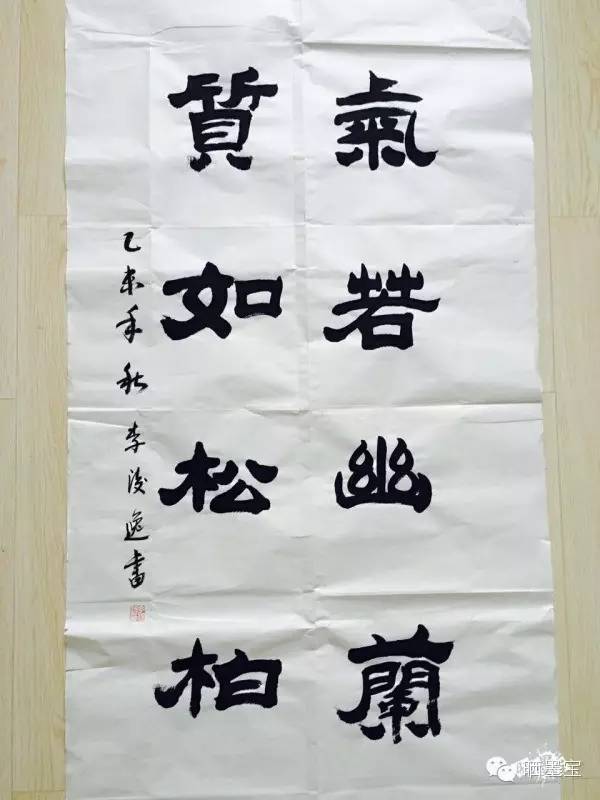 氣若幽蘭
質如松柏
乙未年秋 李俊逸書
晒墨宝